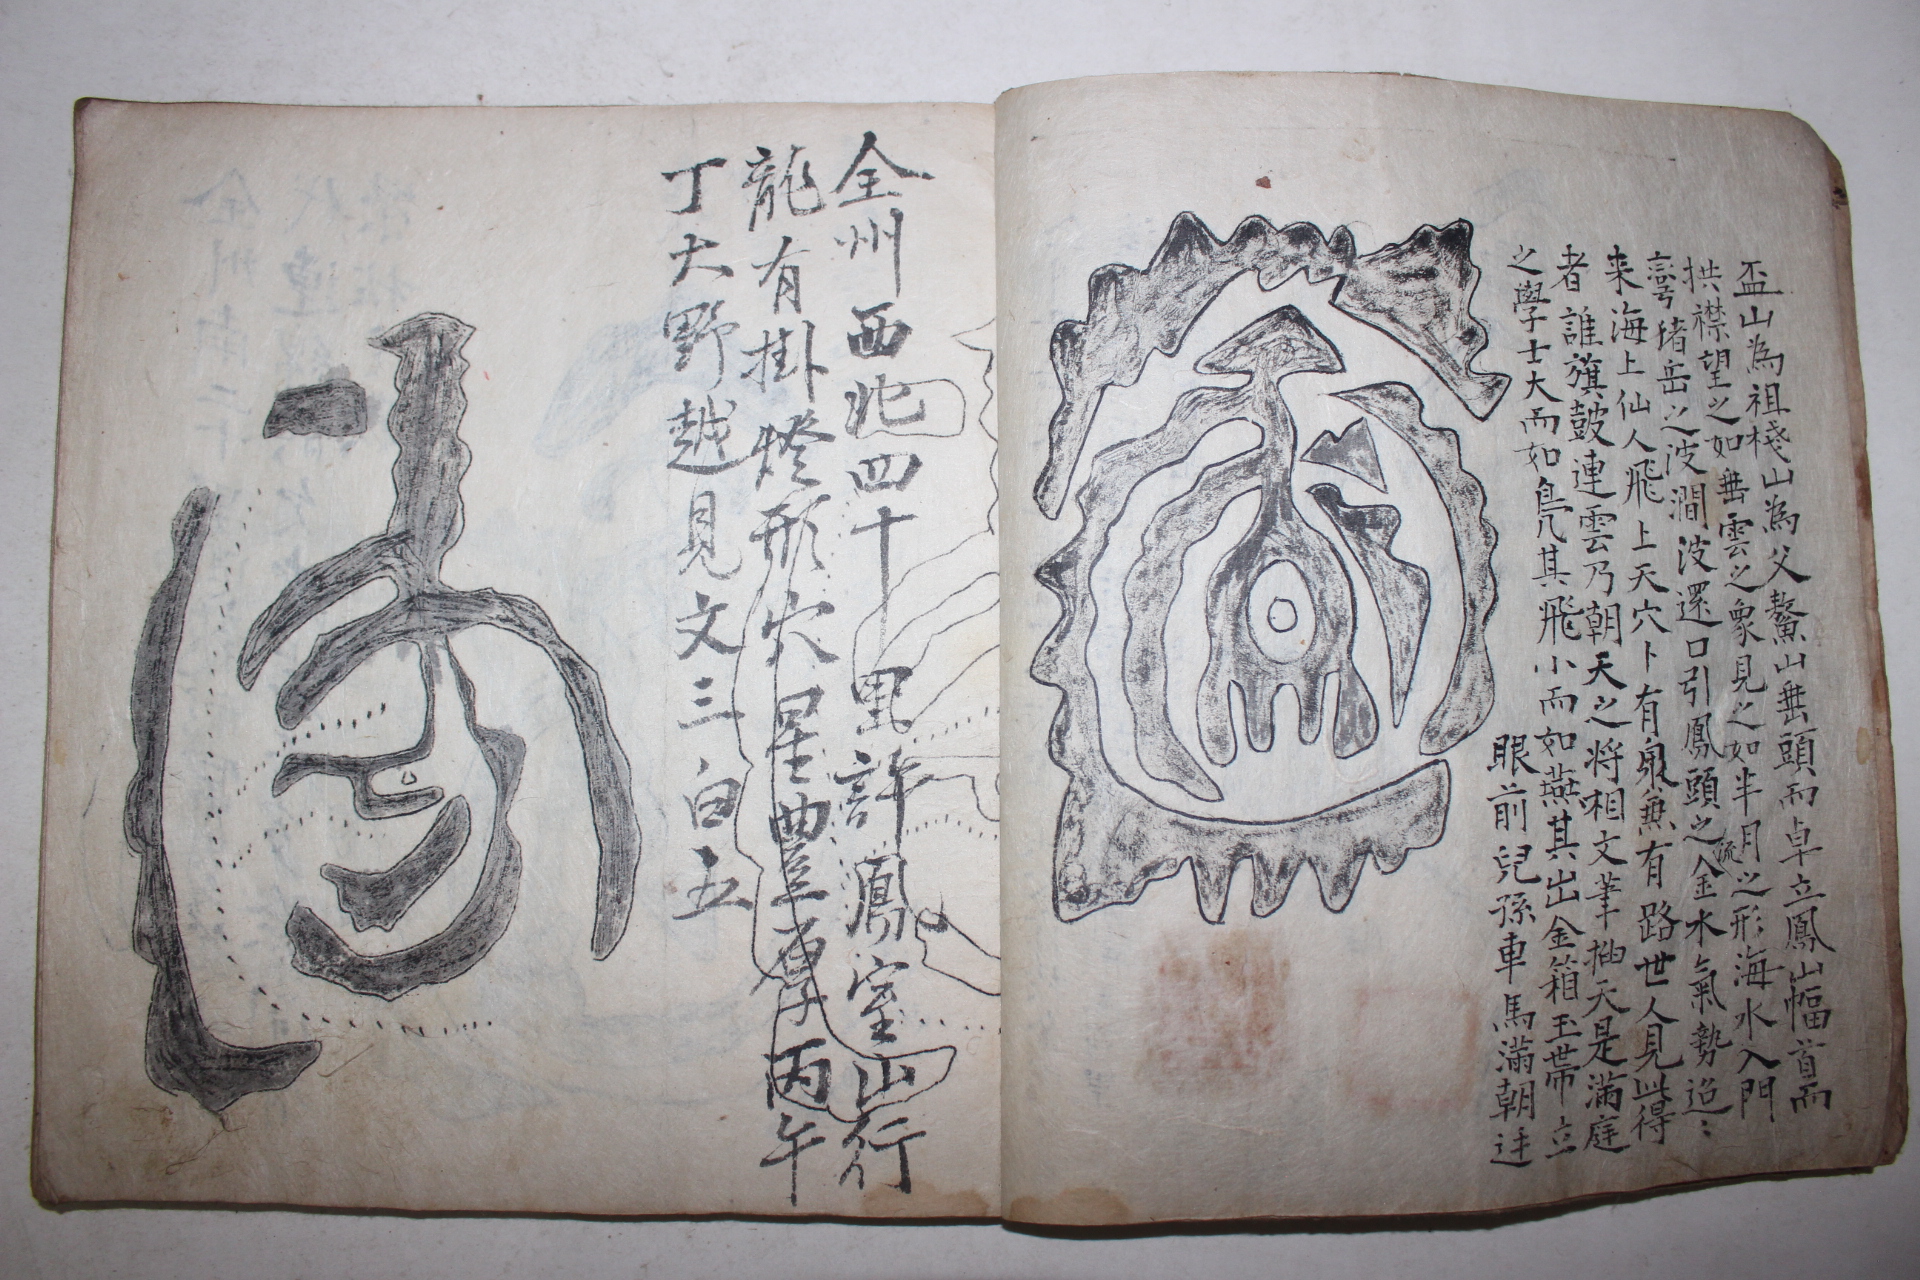 盃山為祖棧山為父鰲山垂頭而卓立鳳山幅首而
拱襟望之如垂雲之象見之如半月之形海水入門
猪岳之波澗波還口引鳳頭之金水氣勢迢〻
来海上仙人飛上天穴卜有泉無有路世人見此得
者誰旗鼓連雲乃朝天之将相文筆揷天是滿庭
之學士大而如鳧其飛小而如燕其出金箱玉帯立
眼前兒孫車馬滿朝廷
全州西北四十里許鳳室山行
龍有掛燈形穴星豊厚丙午
丁大野越見文三白五